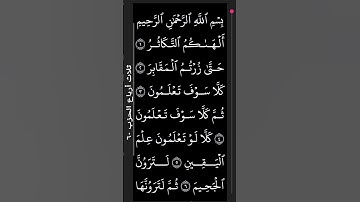 بِسْمِ ٱللَّهِ ٱلرَّحْمَٰنِ ٱلرَّحِيمِ
أَلْهَىٰكُمُ ٱلتَّكَاثُرُ ١
حَتَّىٰ زُرْتُمُ ٱلْمَقَابِرَ ٢
كَلَّا سَوْفَ تَعْلَمُونَ ٣
ثُمَّ كَلَّا سَوْفَ تَعْلَمُونَ
٤ كَلَّا لَوْ تَعْلَمُونَ عِلْمَ
ٱلْيَقِينِ ٥ لَتَرَوُنَّ
ٱلْجَحِيمَ ٦ ثُمَّ لَتَرَوُنَّهَا
ثلاث أرباع الحزب ٦٠